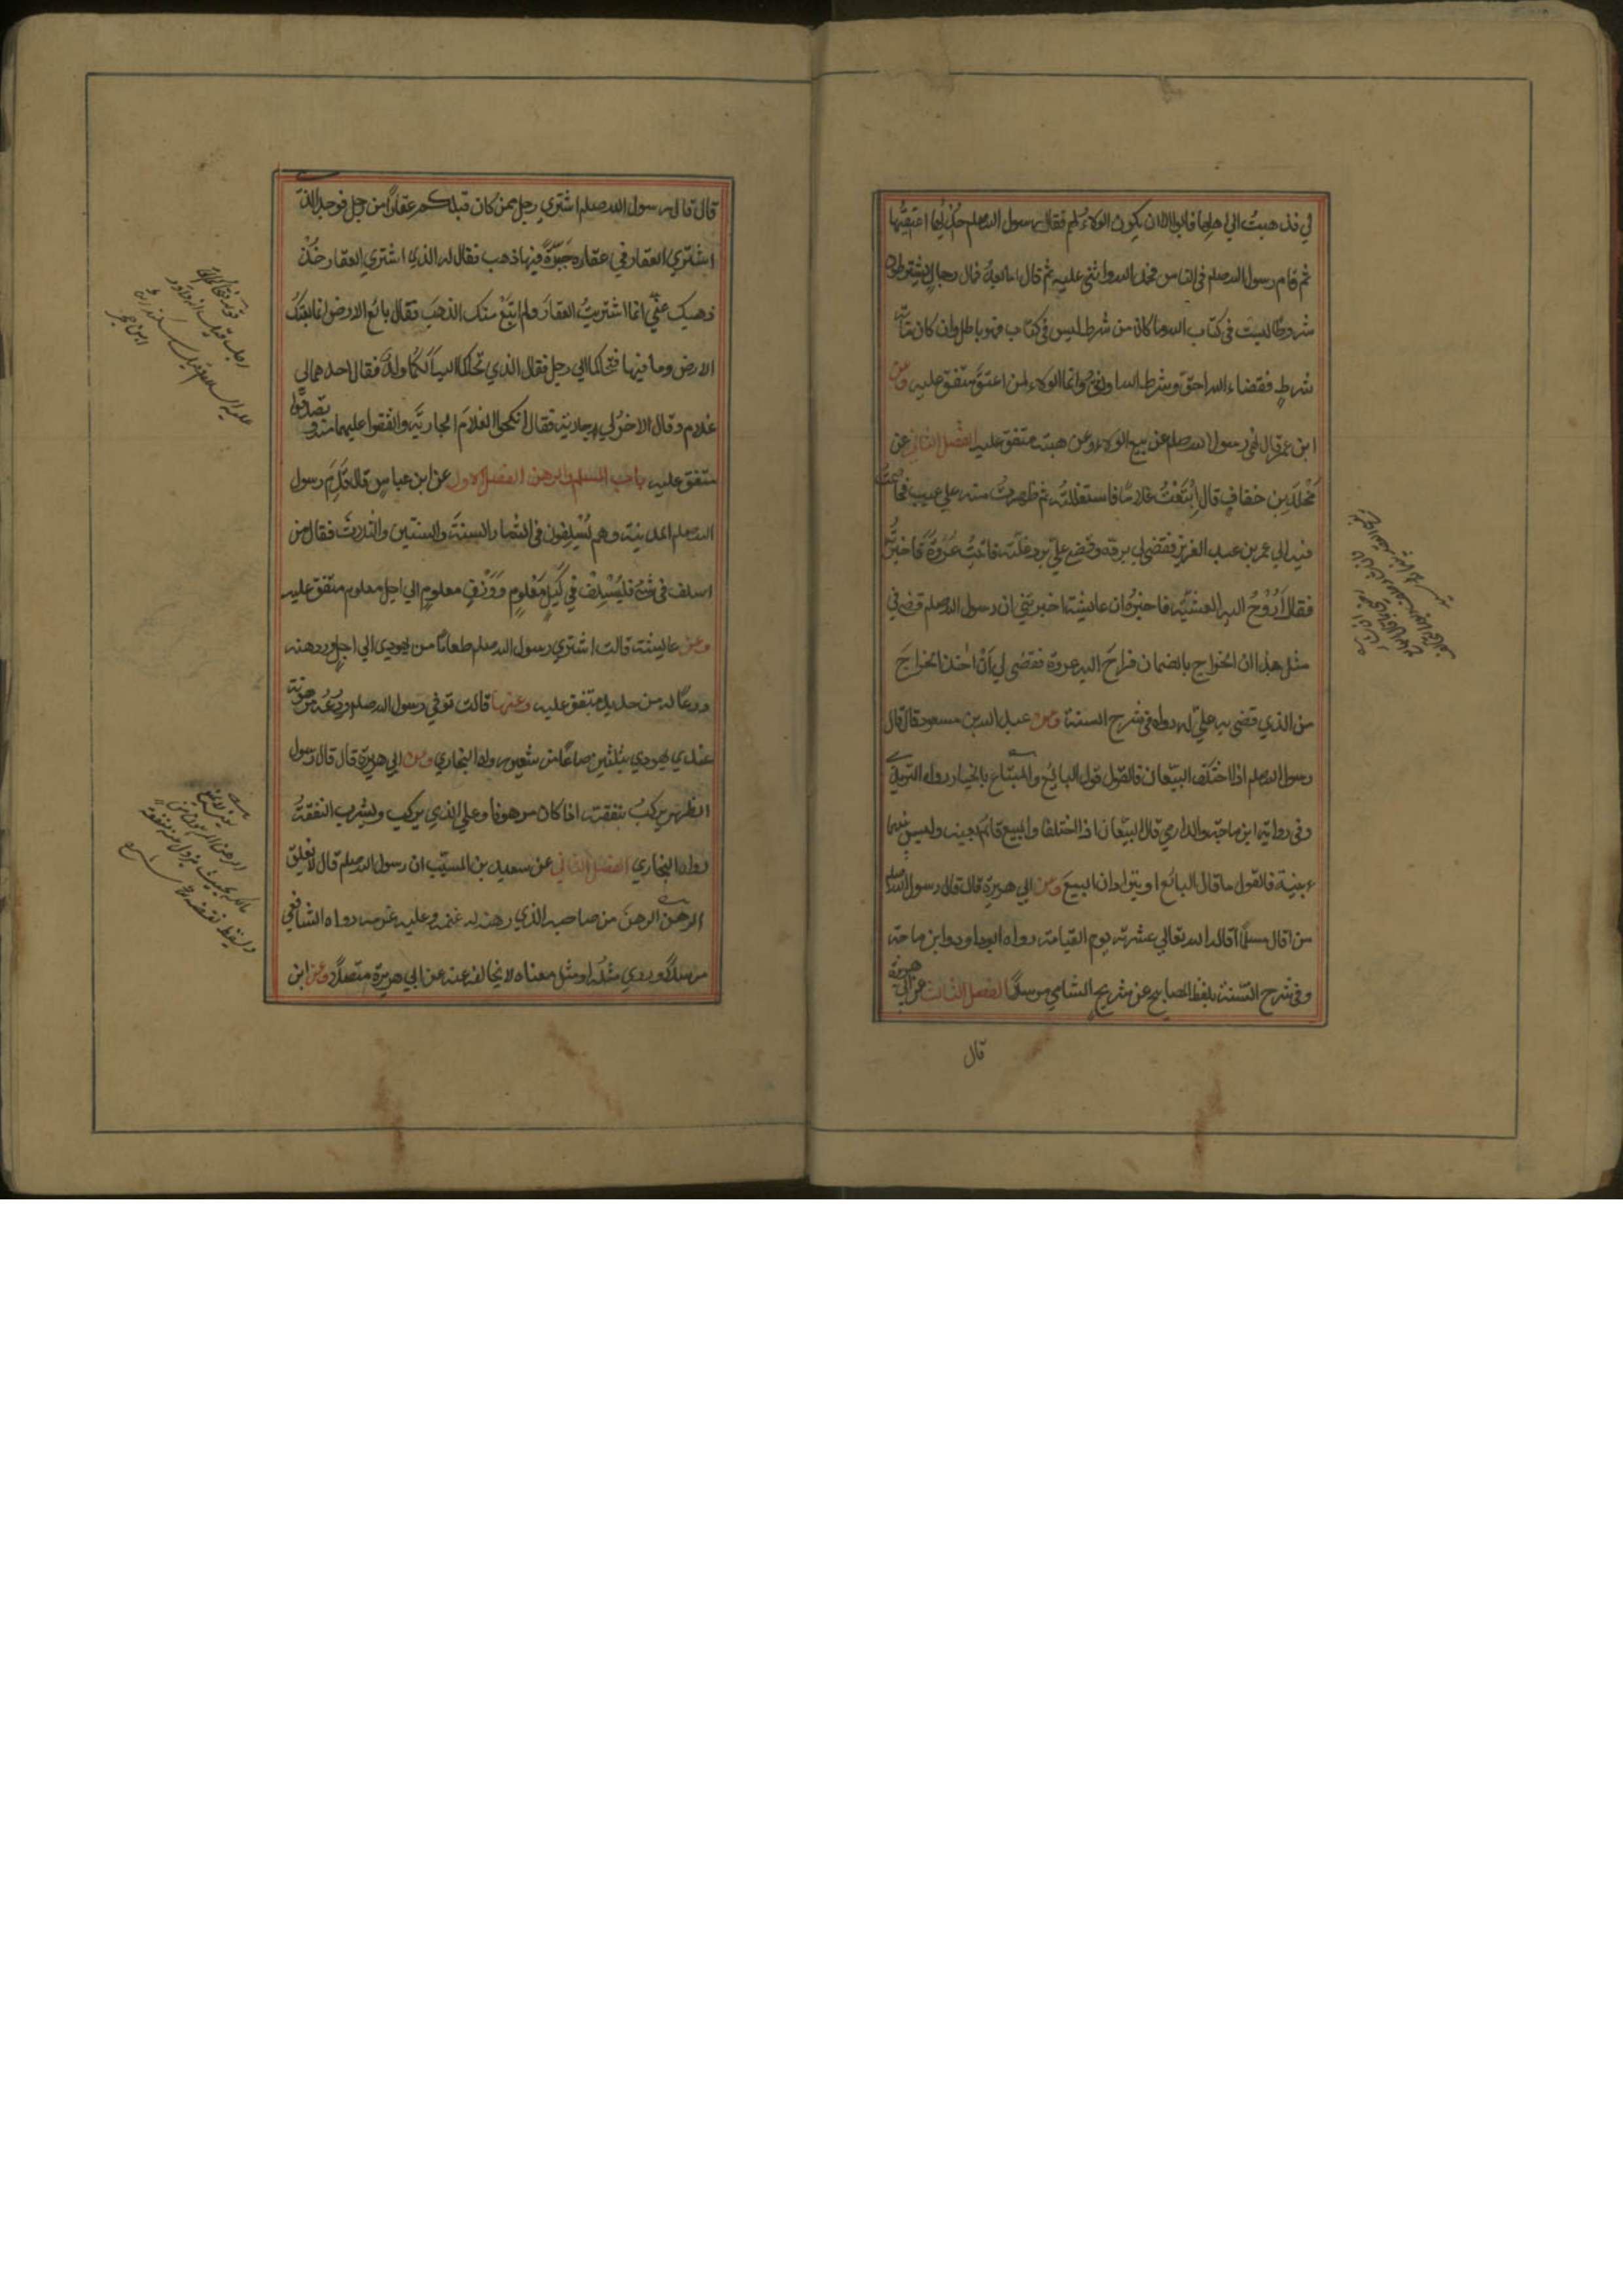 لي فذهبت الي اهلها فابوا الا ان يكون الولاء لهم فقال رسول الله صلعم خذيها اعتقيها
ثم قام رسول الله صلعم في الناس فحمد الله واثنى عليه ثم قال اما بعد فمال رجال يشترطون
شروطا ليست في كتاب الله ما كان من شرط ليس في كتاب فهو باطل وان كان مائة
شرطٍ فقضاء الله احق وشرط الله اوثق وانما الولاء لمن اعتق متفق عليه وعن
ابن عمر قال نهى رسول الله صلعم عن بيع الولاء وعن هبته متفق عليه الفصل الثاني عن
مَخْلَد بن خفافٍ قال اِبْتَعْتُ غلامًا فاستغللته ثم ظهرتُ منه علي عيب فخاصمتُ
فيه الي عمر بن عبد العزيز فقضى لي برده وقضى عليّ برد غلّته فاتيتُ عُرْوَةَ فاخبرتُه
فقال اَرُوْحُ اليه العشيّة فاخبرُه ان عايشة اخبرتني ان رسول الله صلعم قضى في
مثل هذا ان الخراج بالضمان فراحَ اليه عروة فقضى لي اَنْ اخذ الخراجَ
من الذي قضى به عليّ له رواه في شرح السنة وعن عبد الله بن مسعود قال قال
رسول الله صلعم اذا اختلف البيّعان فالقول قول البائع والمبتاع بالخيار رواه الترمذي
وفي رواية ابن ماجة والدارمي قال البيّعان اذا اختلفا والمبيع قائم بعينه وليس بينهما
بينة فالقول ما قال البائع او يترادان البيعَ وعن ابي هريرة قال قال رسول الله صلعم
من اقال مسلمًا اقاله الله تعالي عثرته يوم القيامة رواه ابوداود وابن ماجة
وفي شرح السّنة بلفظ المصابيح عن شريحٍ الشامي مرسلًا الفصل الثالث عن ابي هريرة
قال
قال قال رسول الله صلعم اشتري رجل ممن كان قبلكم عقارًا من رجل فوجد الذي
اشتري العقار في عقاره جَرّةً فيها ذهب فقال له الذي اشتري العقار خُذْ
ذهبك عنّي انما اشتريتُ العقارَ ولم ابتَعْ منك الذهبَ فقال بائع الارض انما بعتكَ
الارض وما فيها فتحاكما الي رجل فقال الذي تحاكما اليه اَلَكُما ولدٌ فقال احدهما لي
غلام وقال الاخرُ لي جارية فقال انكحوا الغلامَ الجاريَةَ وانفقوا عليهما منه وتصدّقوا
متفق عليه باب السلم والرهن الفصل الاول عن ابن عباسٍ قال قَدِمَ رسول
الله صلعم المدينة وهم يُسْلِفون في الثمار السنةَ والسنتين والثلاث فقال من
اسلف في شئ فليُسْلِفْ في كَيْلٍ مَعْلومٍ ووَزْنٍ معلومٍ الي اجل معلوم متفق عليه
وعن عايشة قالت اشتري رسول الله صلعم طعامًا من يهودي الي اجلٍ ورهنه
درعًا له من حديد متفق عليه وعنها قالت توفي رسول الله صلعم ودِرْعُه مرهونة
عند يهودي بثلثين صاعًا من شعير رواه البخاري وعن ابي هريرة قال قال رسول
الظهر يركبُ بنفقته اذا كان مرهونا وعلي الذي يركب ويشرب النفقةُ
رواه البخاري الفصل الثاني عن سعيد بن المسيّب ان رسول الله صلعم قال لا يغلق
الرهنُ الرهنَ من صاحبه الذي رهنه له غنمه وعليه غرمه رواه الشافعي
مرسلًا وروي مثلُه او مثل معناه لا يخالفه عنه عن ابي هريرة متصلًا وعن ابن